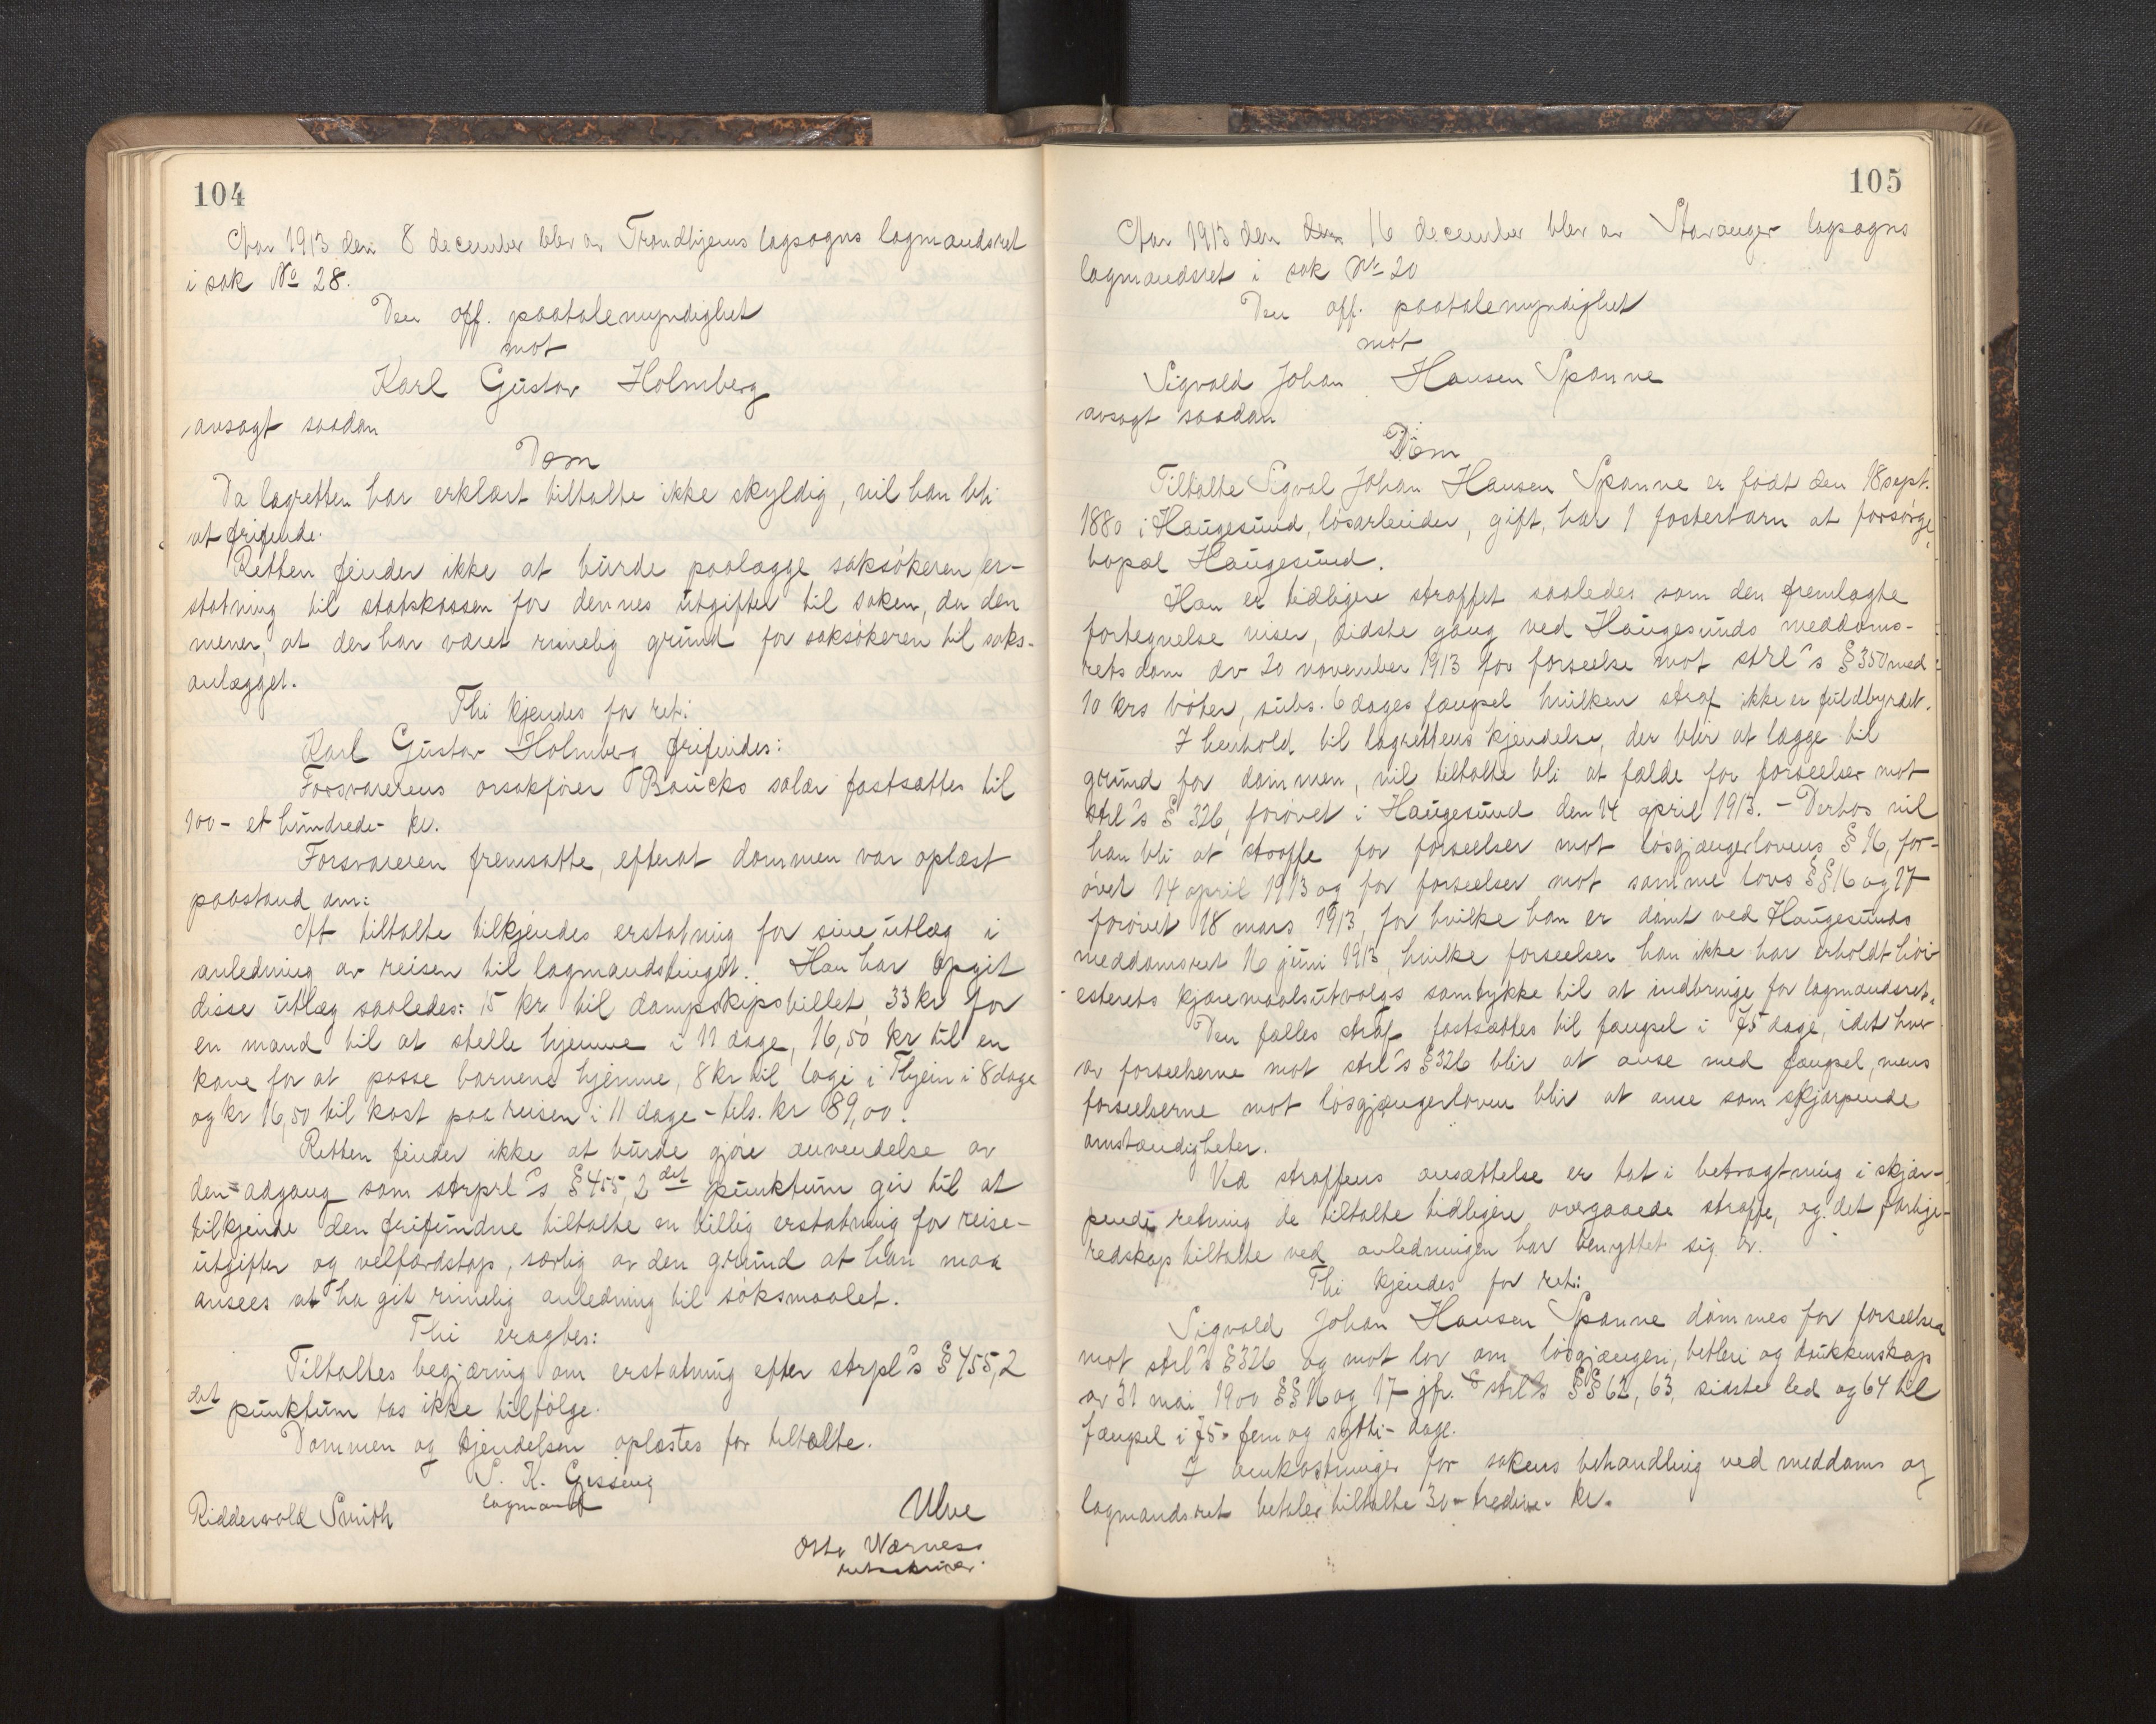 104
Aar 1913 den 8 december blev av Trondhjems lagsogns lagmandsret
i sak No 28.
Den off. paatalemyndighet
mot
Karl Gustav Holmberg
avsagt saadan
Dom
Da lagretten har erklært tiltalte ikke skyldig, vil han bli
at frifinde.
Retten finder ikke at burde paalægge saksøkeren er-
statning til statskassen for dennes utgifter til saken, da den
mener, at der har været rimelig grund for saksøkeren til saks-
anlægget.
Thi kjendes for ret:
Karl Gustav Holmberg frifindes:
Forsvarerens orsakfører Baucks salær fastsættes til
100 - et hundrede - kr.
Forsvareren fremsatte, efterat dommen var oplæst
paastand om:
At tiltalte tilkjendes erstatning for sine utlæg i
anledning av reisen til lagmandstinget. Han har opgit
disse utlæg saaledes: 15 kr til dampskipsbillet, 33 kr for
en mand til at stelle hjemme i 11 dage, 16,50 kr til en
kone for at passe barnene hjemme, 8 kr til logi i Thjem i 8 dage
og kr 16,50 til kost paa reisen i 11 dage - tils. kr 89,00.
Retten finder ikke at burde gjøre anvendelse av
den adgang som strprl's § 455, 2 det punktum gir til at
tilkjende den frifundne tiltalte en billig erstatning for reise-
utgifter og velfærdstap, særlig av den grund at han maa
ansees at ha git rimelig anledning til søksmaalet.
Thi eragtes:
Tiltaltes begjæring om erstatning efter strpl's § 455, 2
det punktum tas ikke tilfølge.
Dommen og kjendelsen oplæstes for tiltalte.
S. K. Gissing
lagmand
Ridderwold Smith
Ulve
Otto Wærness
retsskriver.
105
Aar 1913 den den 16 december blev av Stavanger lagsogns
lagmandsret i sak No 20
Den off. paatalemyndighet
mot
Sigvald Johan Hansen Spanne
avsagt saadan
Dom
Tiltalte Sigval Johan Hansen Spanne er født den 18 sept.
1880 i Haugesund, løsarbeider, gift, har 1 fosterbarn at forsørge,
bopæl Haugesund.
Han er tidligere straffet saaledes som den fremlagte
fortegnelse viser, sidste gang ved Haugesunds meddoms-
rets dom av 20 november 1913 for forseelse mot strl's § 350 med
10 krs bøter, subs. 6 dages fængsel hvilken straf ikke er fuldbyrdet.
I henhold til lagrettens kjendelse, der blir at lægge til
grund for dommen, vil tiltalte bli at fælde for forseelser mot
strl's § 326, forøvet i Haugesund den 14 april 1913. - Derhos vil
han bli at straffe for forseelser mot løsgjængerlovens § 16, for-
øvet 14 april 1913 og for forseelser mot samme lovs §§ 16 og 17
forøvet 18 mars 1913, for hvilke han er dømt ved Haugesunds
meddomsret 16 juni 1913, hvilke forseelser han ikke har erholdt høi-
esterets kjæremaalsutvalgs samtykke til at indbringe for lagmandsret.
Den fælles straf fastsættes til fængsel i 75 dage, idet hver
av forseelserne mot strl's § 326 blir at anse med fængsel, mens
forseelserne mot løsgjængerloven blir at anse som skjærpende
omstændigheter.
Ved straffens ansættelse er tat i betragtning i skjær-
pende retning de tiltalte tidligere overgaaede straffe, og det farlige
redskap tiltalte ved anledningen har benyttet sig av.
Thi kjendes for ret:
Sigvald Johan Hansen Spanne dømmes for forseelser
mot strl's § 326 og mot lov om løsgjængeri, betleri og drukkenskap
av 31 mai 1900 §§ 16 og 17 jfr. strl's §§ 62, 63, sidste led og 64 til
fængsel i 75 - fem og sytti - dage.
I omkostninger for sakens behandling ved meddoms og
lagmandsret betaler tiltalte 30 - tredive - kr.